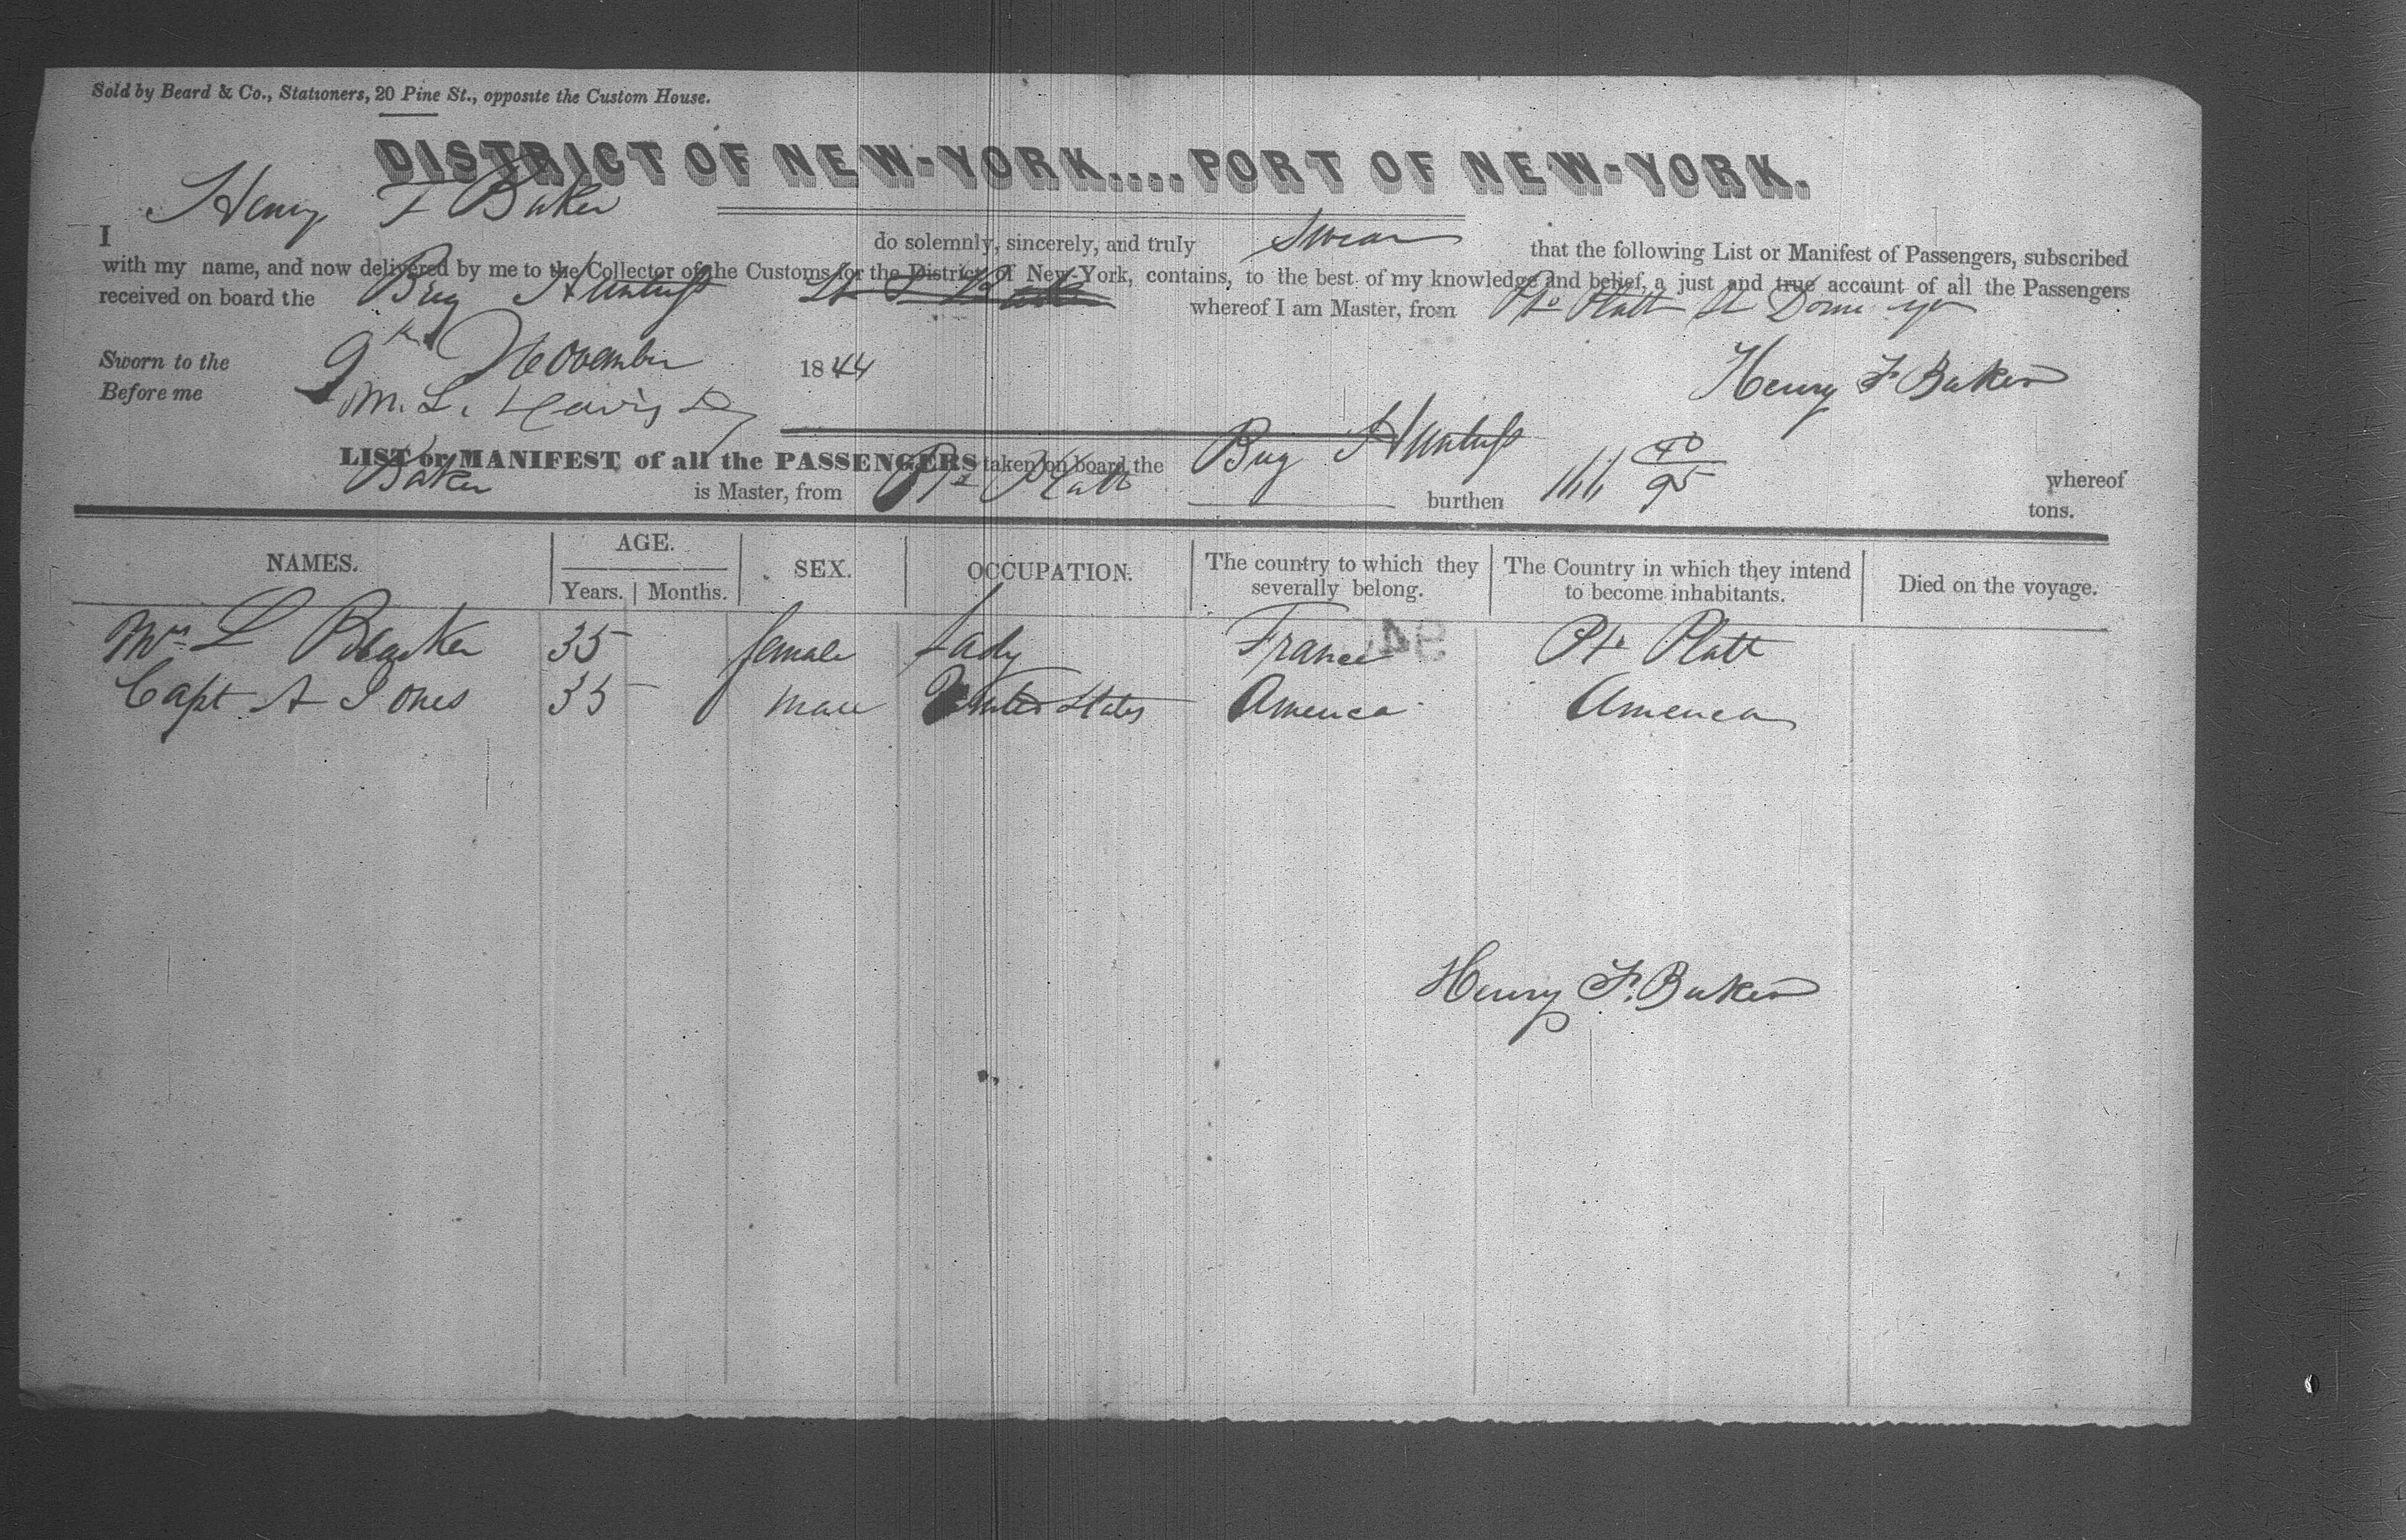 Sold by Beard & Co., Stationers, 20 Pine St., opposite the Custom House.
DISTRICT OF NEW-YORK....PORT OF NEW-YORK.
I Henry F Baker do solemnly, sincerely, and truly swear that the following List or Manifest of Passengers, subscribed
with my name, and now delivered by me to the Collector of the Customs for the District of New-York, contains, to the best of my knowledge and belief, a just and true account of all the Passengers
received on board the Brig Huntress whereof I am Master, from Pto Platt St Domingo
Sworn to the 9th November 1844 Henry F Baker
Before me M. L. Davis
LIST or MANIFEST of all the PASSENGERS taken on board the Brig Huntress whereof
Baker is Master, from Pto Platt burthen 40/95 tons.
NAMES. AGE. SEX. OCCUPATION. The country to which they severally belong. The Country in which they intend to become inhabitants. Died on the voyage.
Years. Months.
Mrs L 35 female Lady France Pto Platt
Capt A Jones 35 male United States America America
94
Henry F. Baker